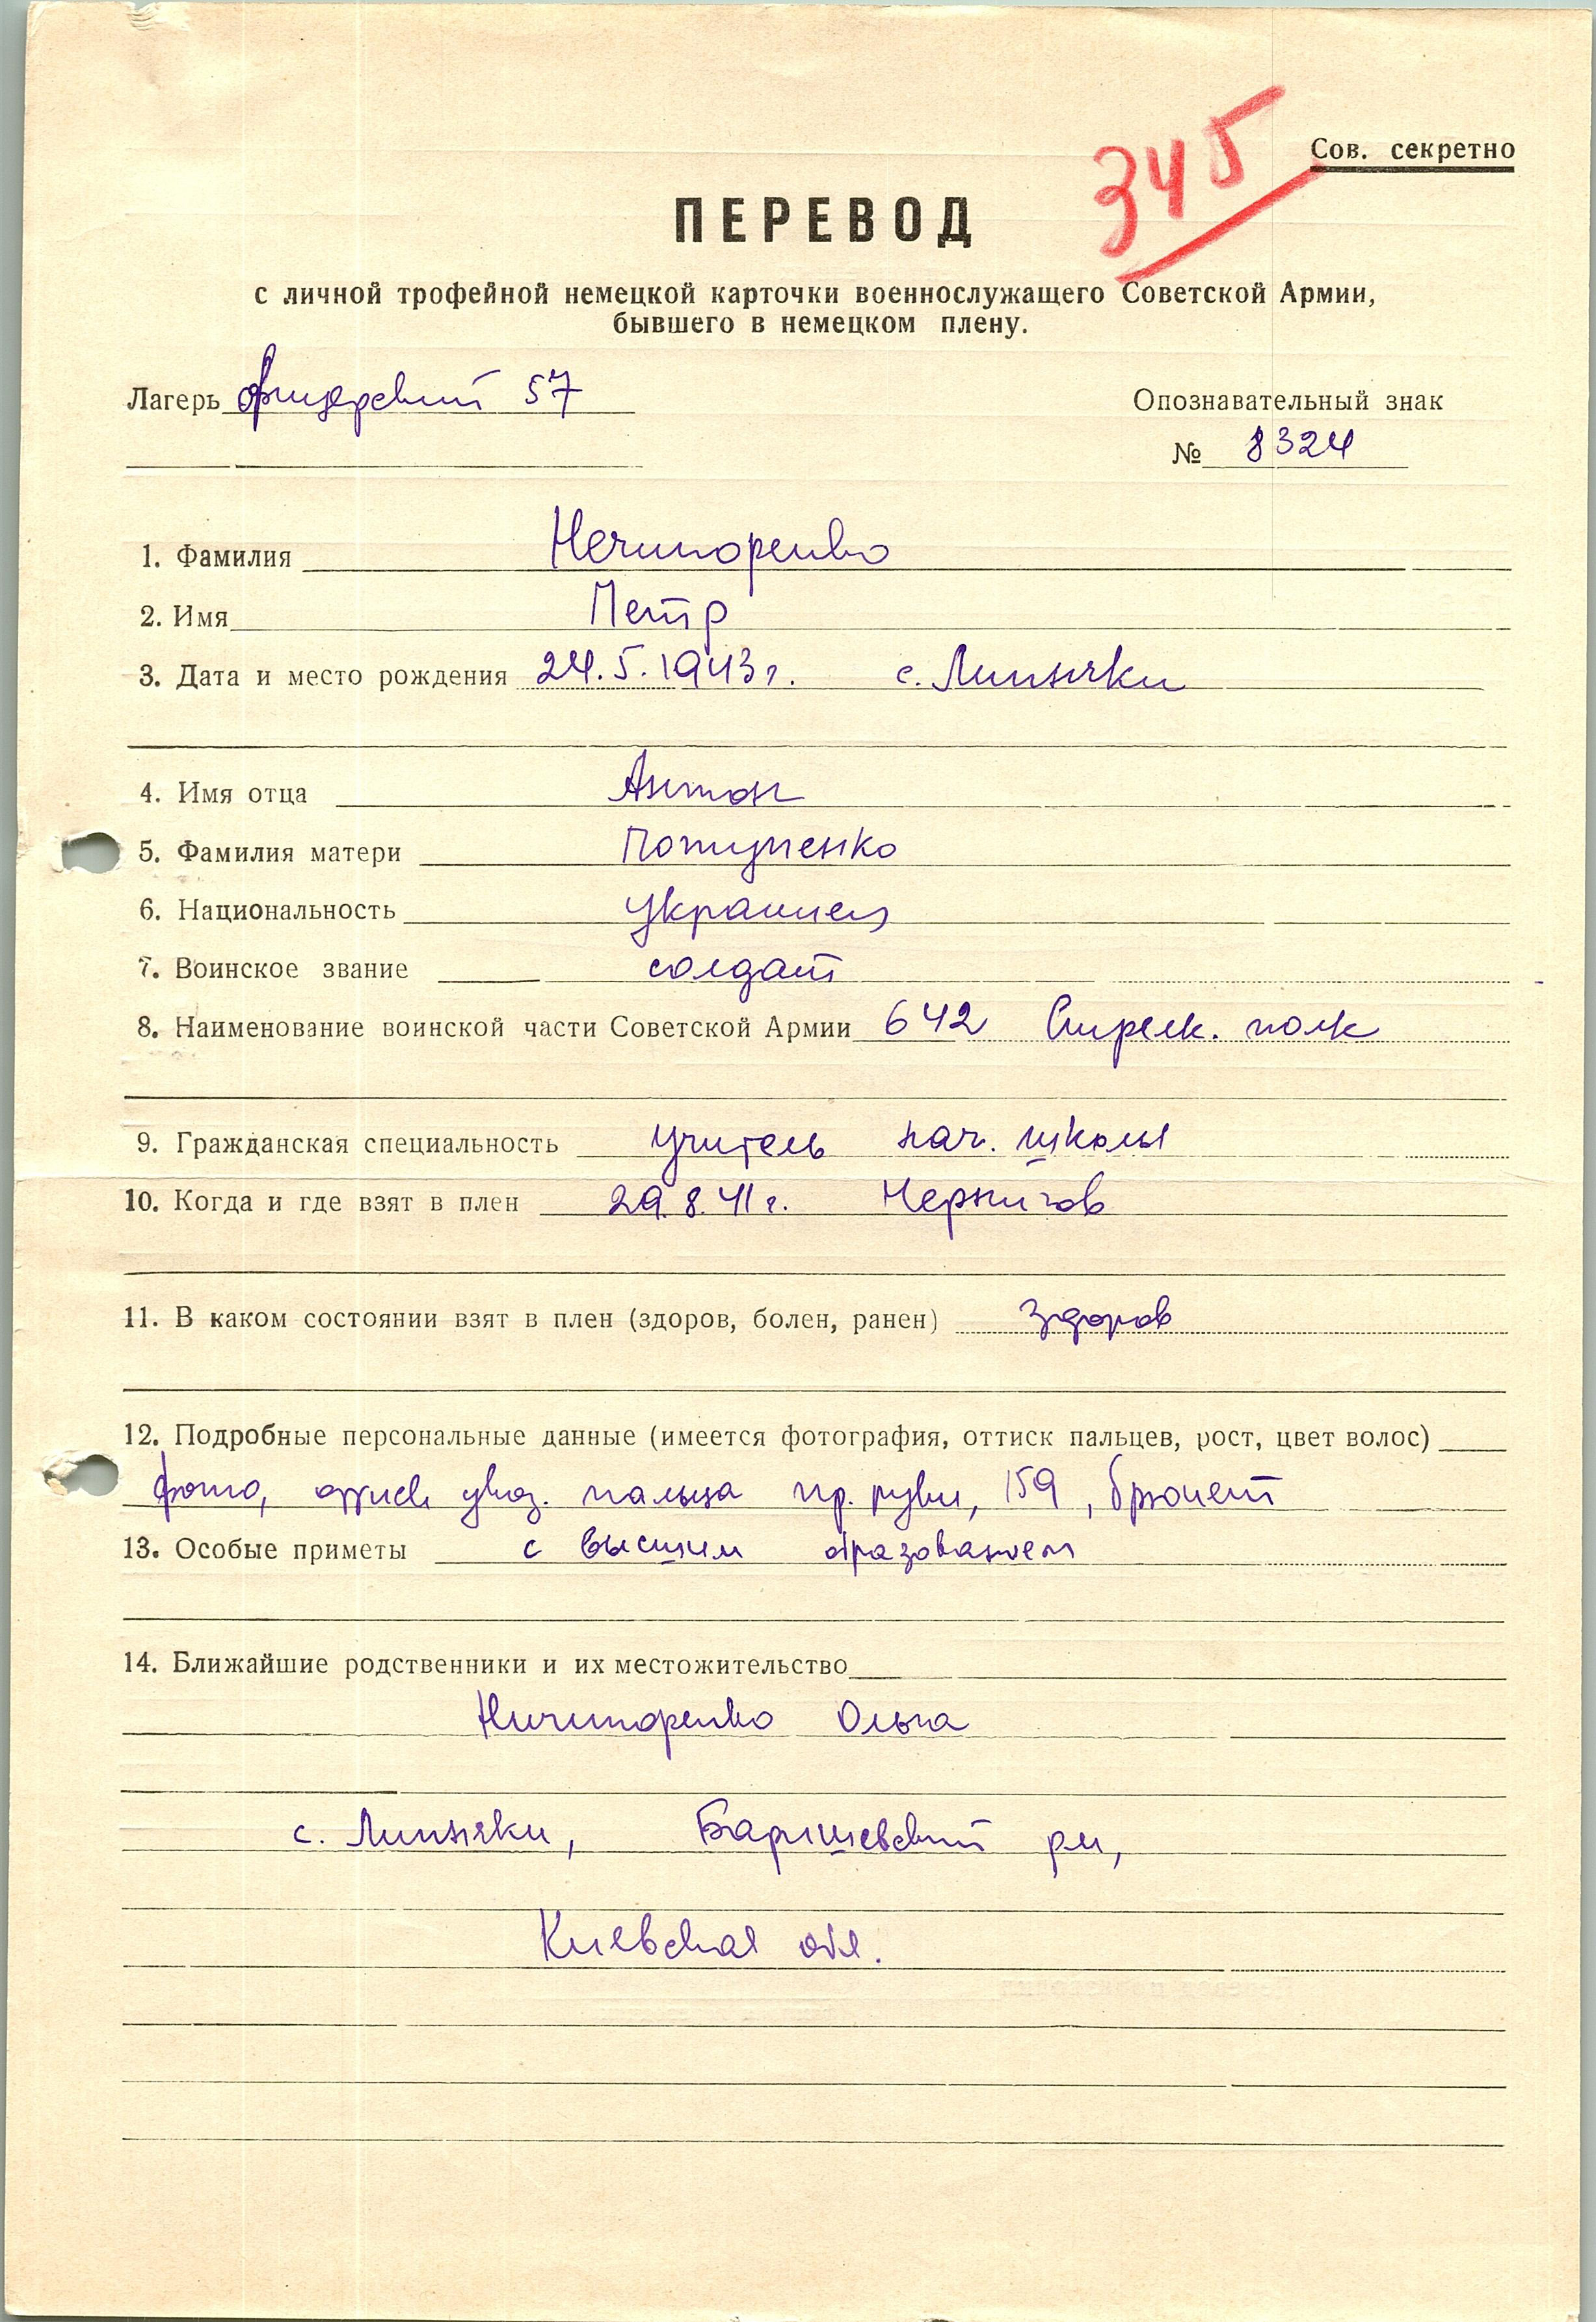 345
Сов. секретно
ПЕРЕВОД
с личной трофейной немецкой карточки военнослужащего Советской Армии,
бывшего в немецком плену.
Лагерь офицерский 57
Опознавательный знак
№ 8324
1. Фамилия Нечипоренко
2. Имя Петр
3. Дата и место рождения 24.5.1943г. с. Липняки
4. Имя отца Антон
5. Фамилия матери
6. Национальность украинец
7. Воинское звание солдат
8. Наименование воинской части Советской Армии 642 Стрелк. полк
9. Гражданская специальность учитель нач. школы
10. Когда и где взят в плен 29.8.41г. Чернигов
11. В каком состоянии взят в плен (здоров, болен, ранен) здоров
12. Подробные персональные данные (имеется фотография, оттиск пальцев, рост, цвет волос)
фото, оттиск указ. пальца пр. руки, 159, брюнет
13. Особые приметы с высшим образованием
14. Ближайшие родственники и их местожительство
Ничипоренко Ольга
с. Липняки, Баришевский рн,
Киевская обл.